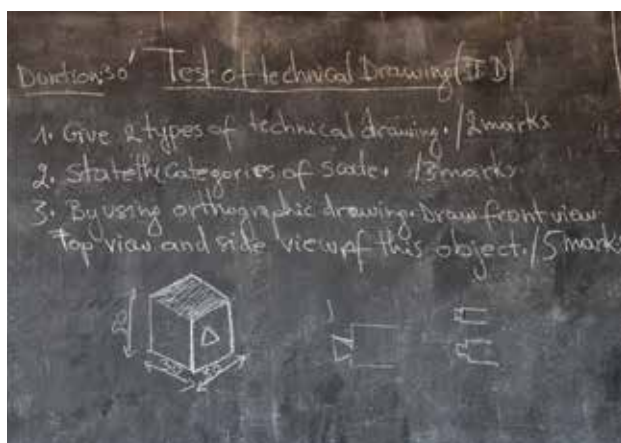 Duration: 30' Test of technical Drawing (II D)
1. Give 2 types of technical drawing. /2marks
2. State the categories of scale. /3marks
3. By using orthographic drawing. Draw front view.
Top view and side view of this object. /5marks